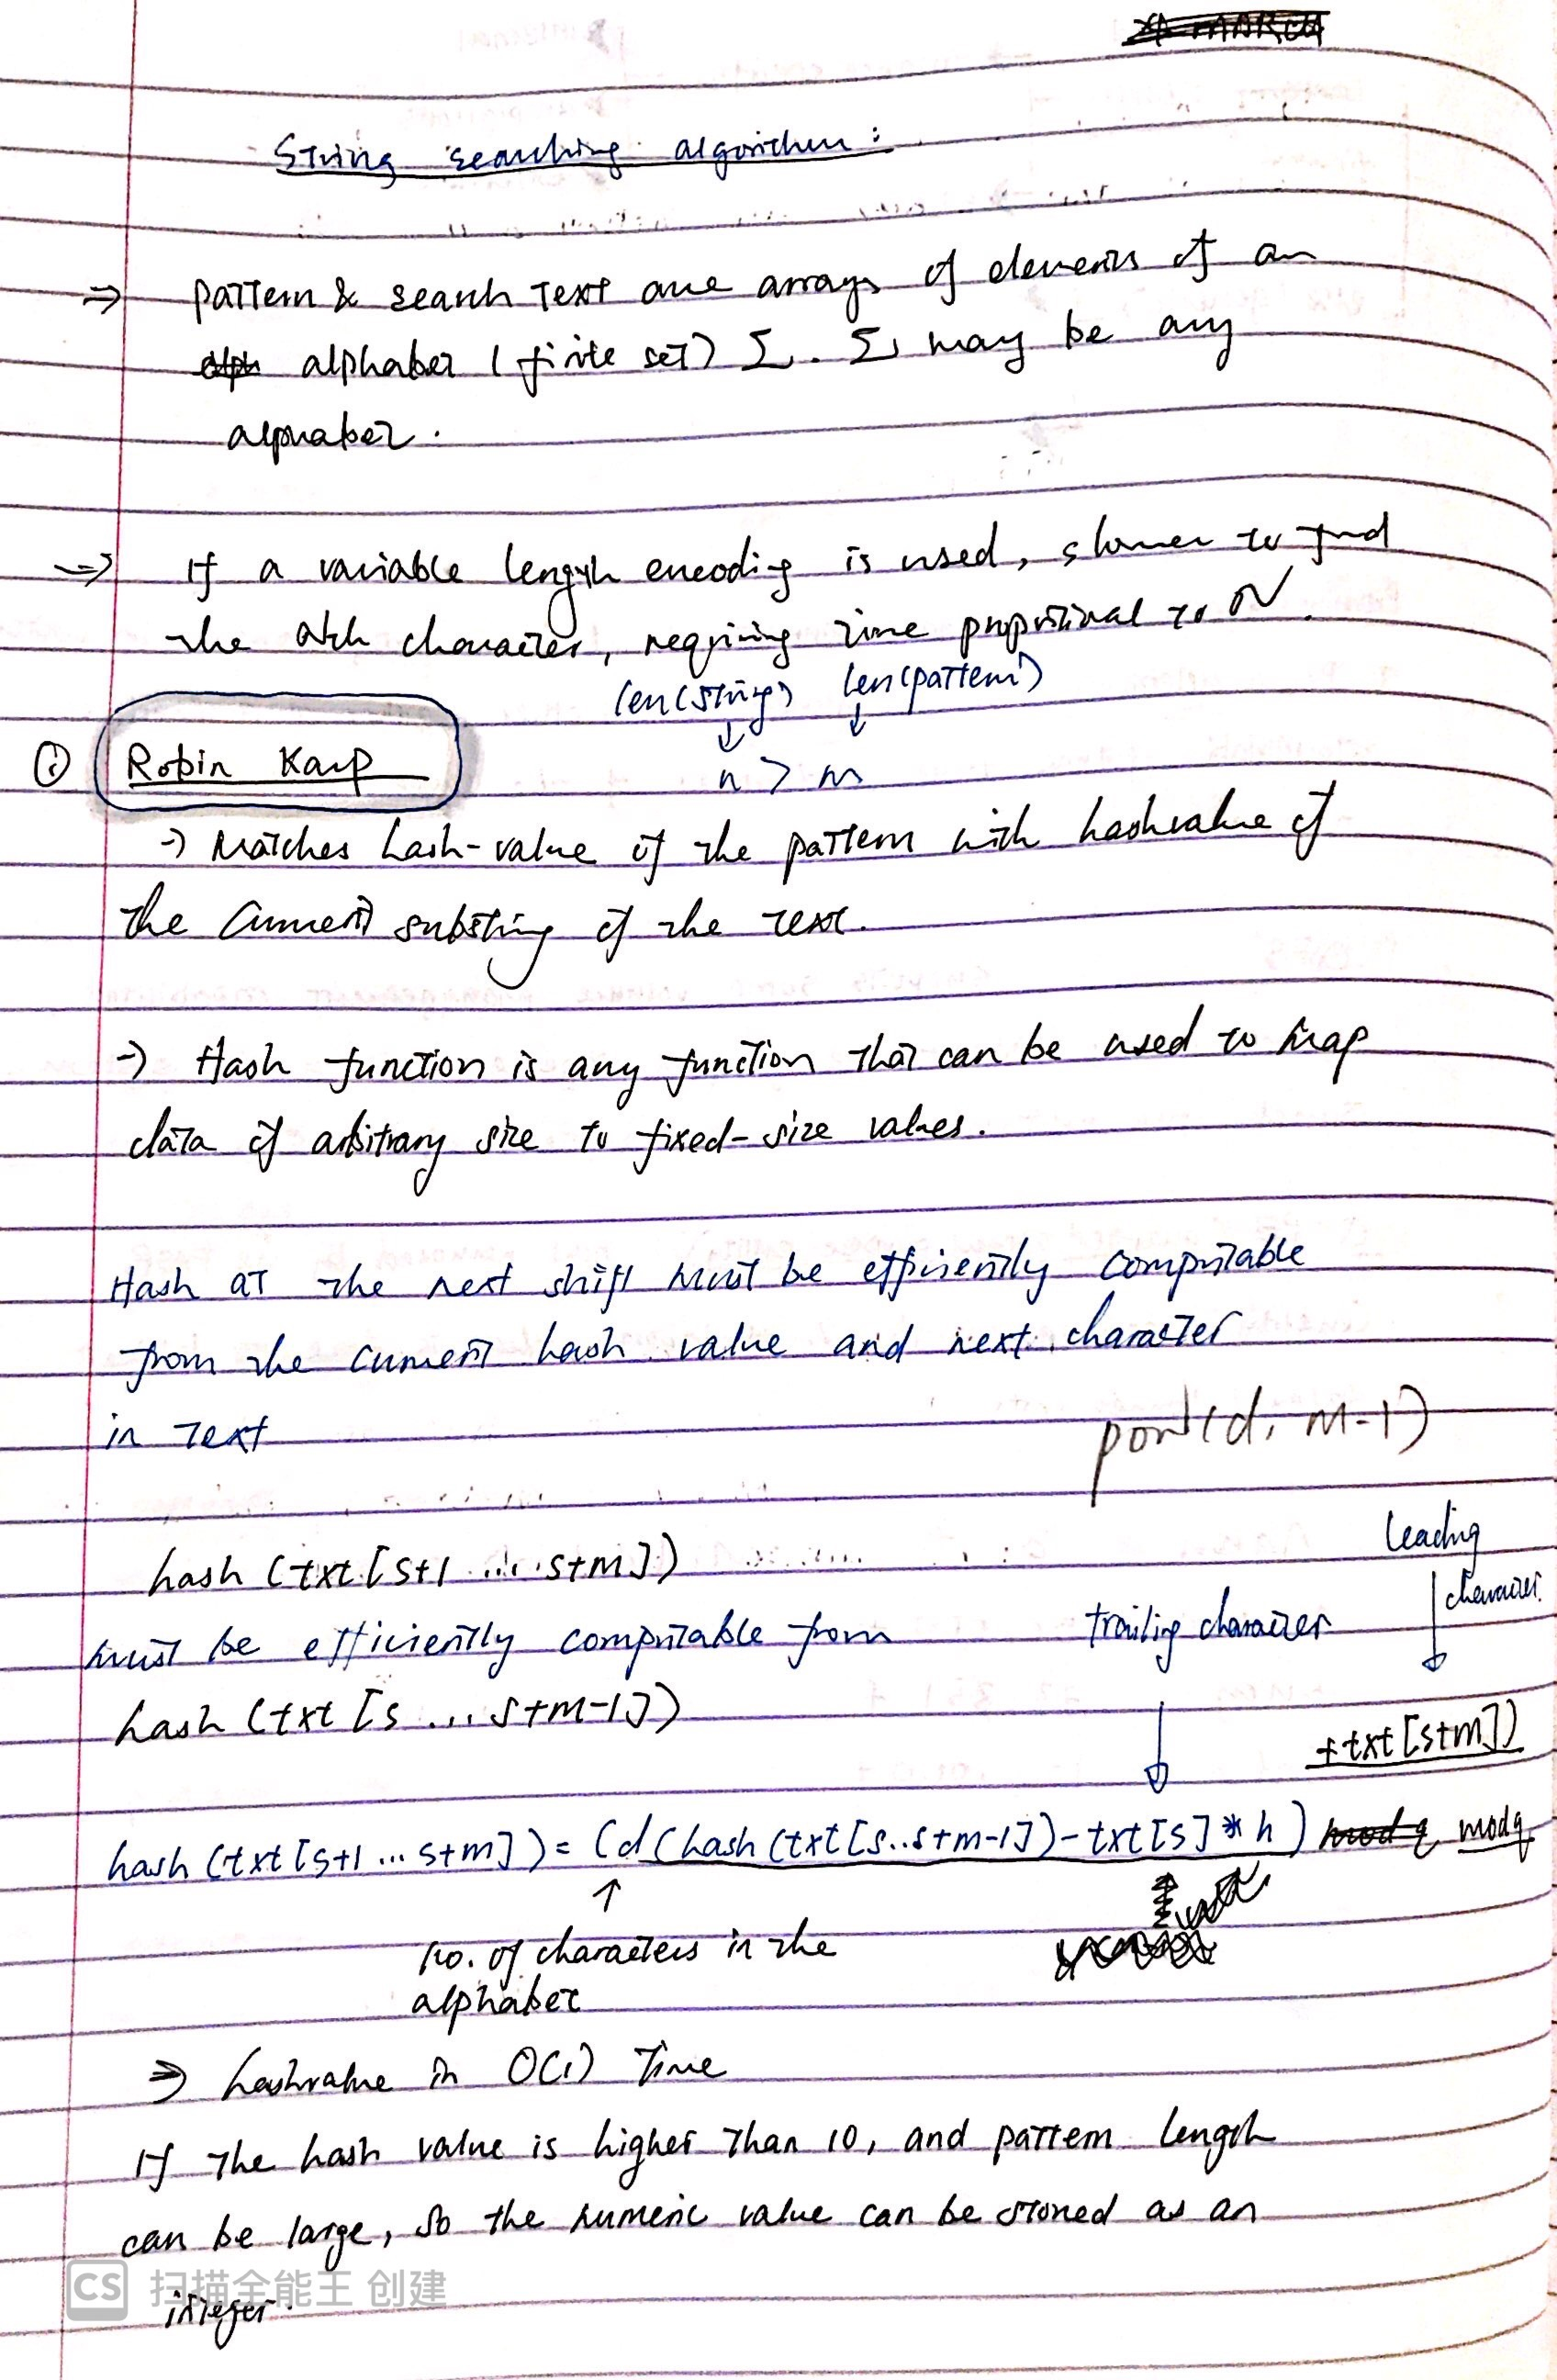 String searching algorithm:
⇒ Pattern & search text are arrays of elements of an
alphabet (finite set) Σ. Σ may be any
alphabet.
⇒ If a variable length encoding is used, slower to find
the Nth character, requiring time proportional to N.
len(string) len(pattern)
↓ ↓
① Robin Karp n > m
→ Matches hash-value of the pattern with hashvalue of
the current substring of the text.
→ Hash function is any function that can be used to map
data of arbitrary size to fixed-size values.
Hash at the next shift must be efficiently computable
from the current hash value and next character
in text
pow(d, m-1)
hash (txt[s+1 .... s+m])
leading
character
must be efficiently computable from trailing character
hash (txt [s ... s+m-1])
+txt[s+m])
hash (txt[s+1 ... s+m]) = (d(hash(txt[s..s+m-1])-txt[s]*h) mod q mod q
↑
no. of characters in the
alphabet
⇒ hashvalue in O(1) Time
If the hash value is higher than 10, and pattern length
can be large, so the numeric value can be stored as an
integer.
CS 扫描全能王 创建